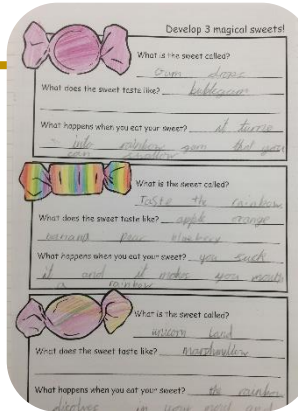 Develop 3 magical sweets!
What is the sweet called?
Gum drops
What does the sweet taste like? bubblegum
What happens when you eat your sweet? it turns
into rainbow gum that you
can swallow
What is the sweet called?
Taste the rainbow
What does the sweet taste like? apple orange
banana pear blueberry
What happens when you eat your sweet? you suck
it and it makes you mouth
a rainbow
What is the sweet called?
unicorn land
What does the sweet taste like? Marshmallow
What happens when you eat your sweet? the rainbow
in your